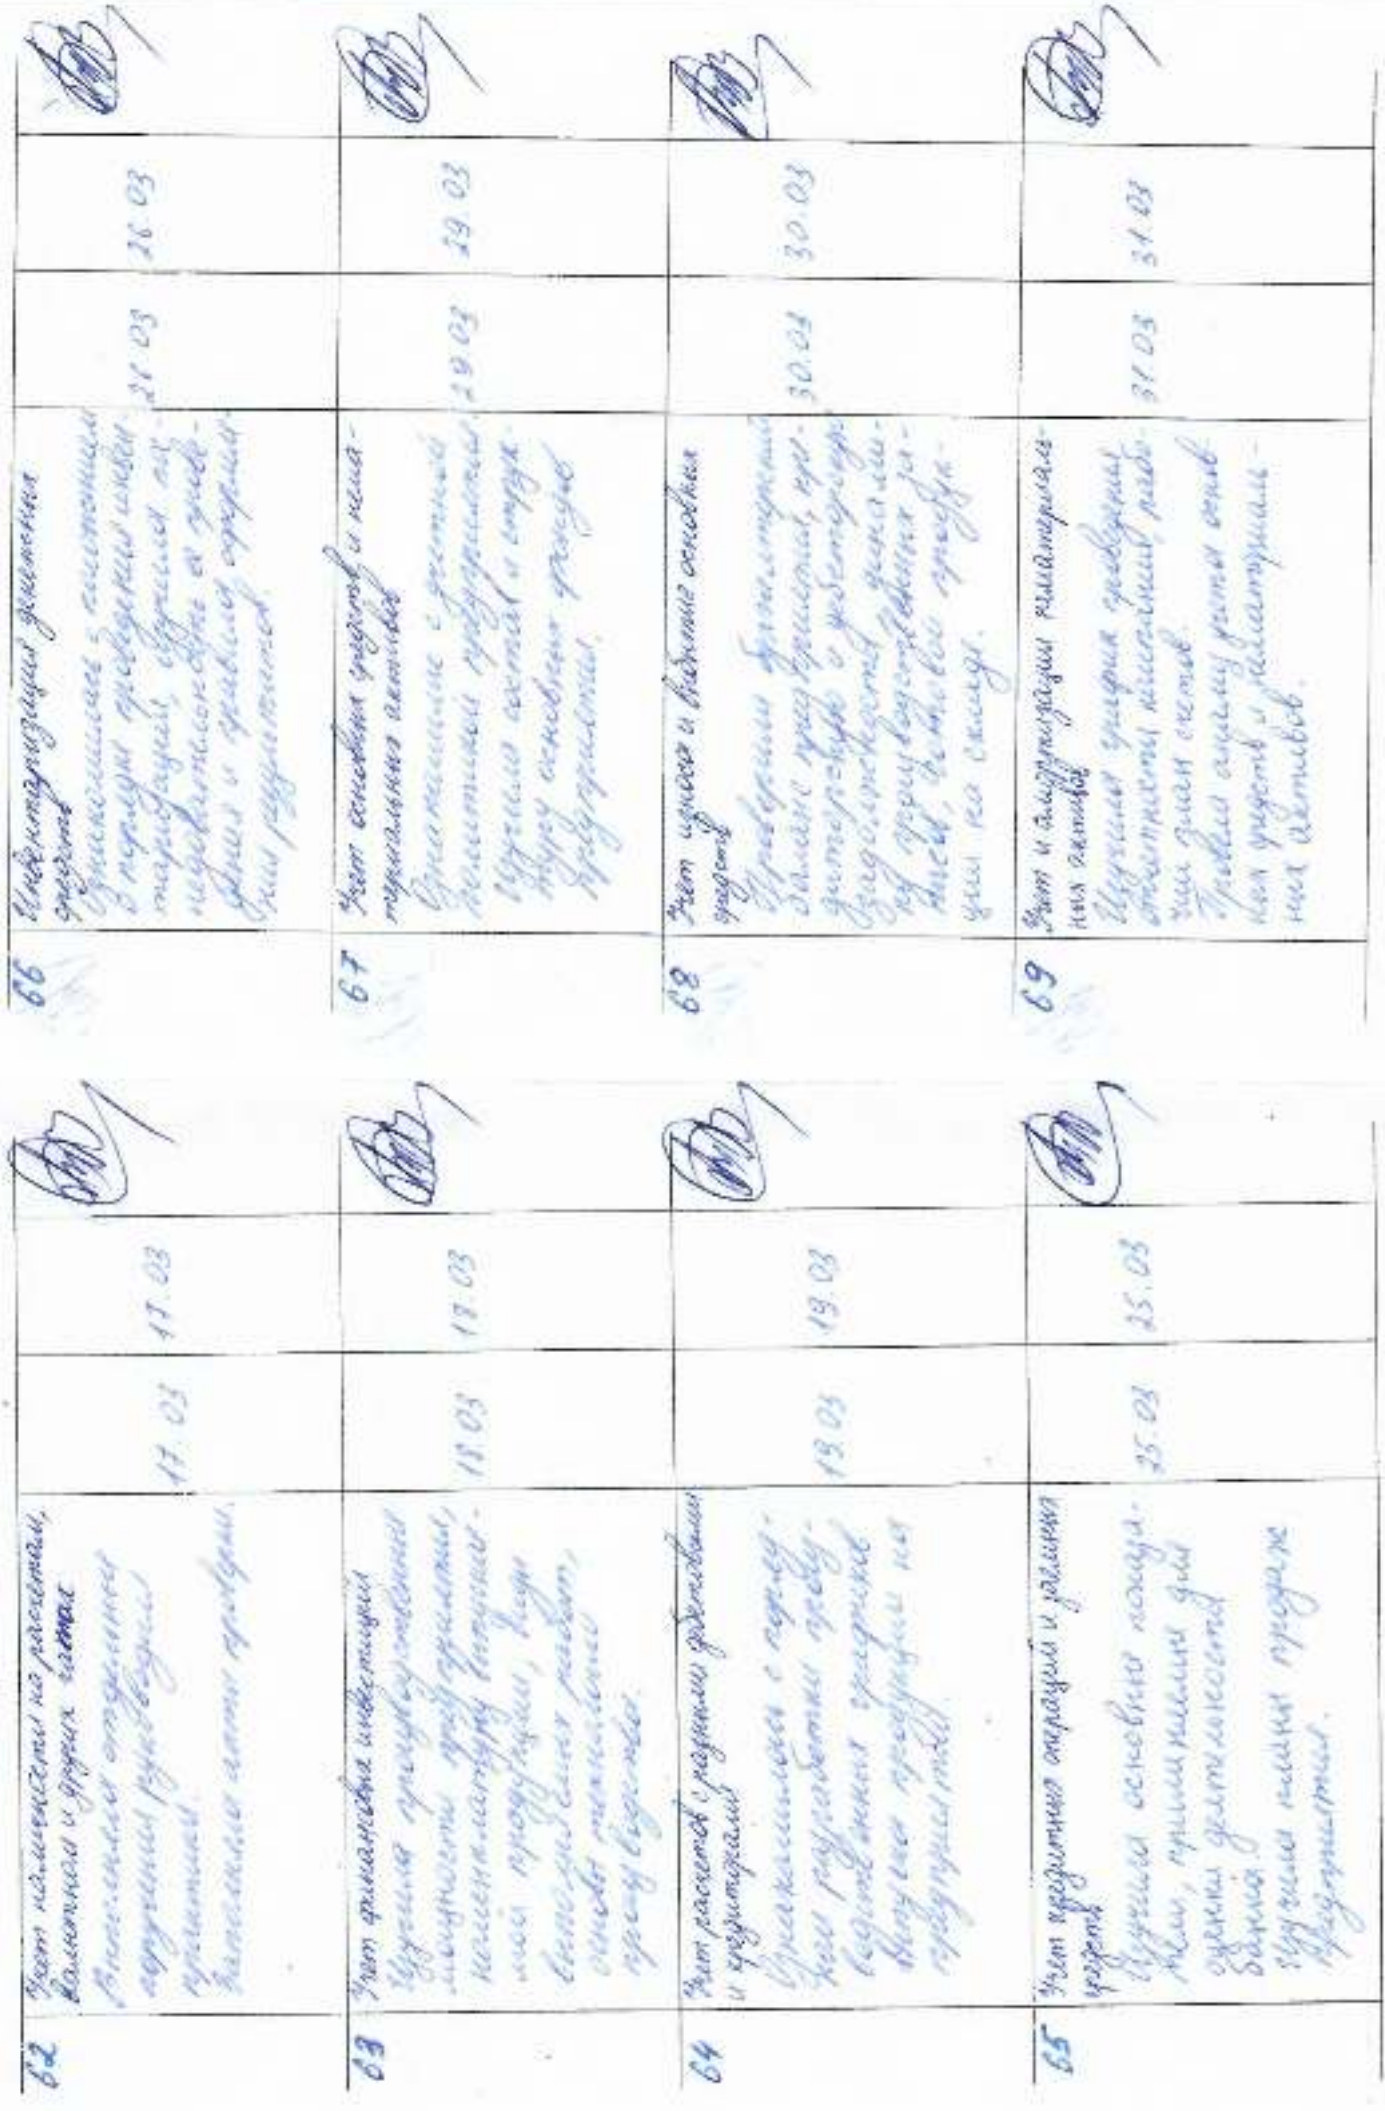 62
Учет наличности на расчетном,
валютном и других счетах
Выполняла отдельные
поручения руководи
приятия.
17.03
17.03
63
Учет финансовых инвестиций
Изучила производственные
мощности предприятия,
номенклатуру выпускае-
мой продукции, виды
выполняемых работ,
основы технологии
производства.
18.03
18.03
64
Учет расчетов с разными дебиторами
и кредиторами
Ознакомилась с поряд-
ком разработки произ-
водственных графиков
выпуска продукции на
предприятии
19.03
19.03
65
Учет кредитных операций и заемных
средств
Изучила основные показа-
тели, применяемые для
оценки деятельности
Изучила планы продаж
предприятия.
25.03
25.03
66
Инвентаризация денежных
средств
Ознакомилась с
в порядок проведения инвен-
таризации, изучила по-
следовательность её прове-
дения и правила оформле-
ния результатов.
26.03
26.03
67
Учет основных средств и нема-
териальных активов
Ознакомление с учетной
политикой предприятия.
Изучила состав и струк-
туру основных фондов
предприятия.
29.03
29.03
68
Учет износа и выбытия основных
средств
Проверила бухгалтерский
баланс предприятия, про-
дебиторскую и кредиторскую
задолженность,
по производственным за-
пасам, готовой продук-
ции на складе.
30.03
30.03
69
Учет и амортизация нематериаль-
ных активов
Изучила график проведения
отчетности компании, рабо-
чий план счетов.
Провела анализ учета основ-
ных средств и нематериаль-
ных активов.
31.03
31.03